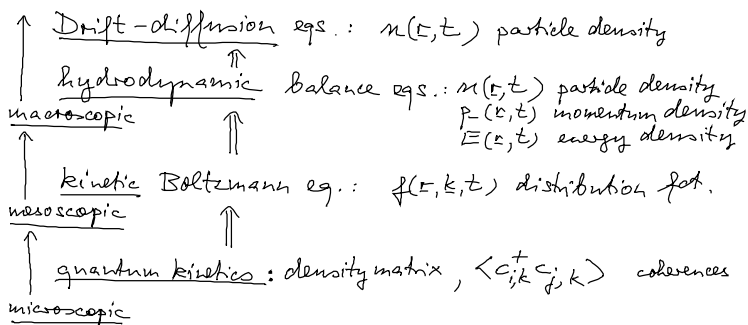 Drift-diffusion eqs.: n(r,t) particle density
⇑
hydrodynamic balance eqs.: n(r,t) particle density
macroscopic p(r,t) momentum density
E(r,t) energy density
⇑
kinetic Boltzmann eq.: f(r,k,t) distribution fct.
mesoscopic
⇑
quantum kinetics: density matrix, <c⁺_{i,k} c_{j,k}> coherences
microscopic